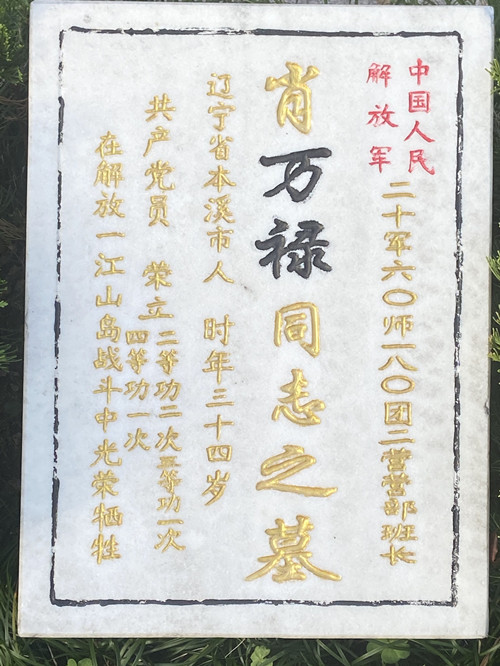 中国人民
解放军
二十军六〇师一八〇团二营营部班长
肖万禄同志之墓
辽宁省本溪市人 时年三十四岁
共产党员 荣立二等功二次三等功一次
四等功一次
在解放一江山岛战斗中光荣牺牲